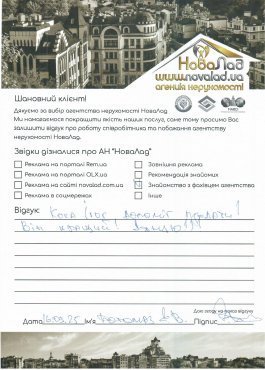 НоваЛад
www.novalad.ua
агенція нерухомості
Шановний клієнт!
Дякуємо за вибір агентства нерухомості НоваЛад.
Ми намагаємося покращити якість наших послуг, саме тому просимо Вас
залишити відгук про роботу співробітника та побажання агентству
нерухомості НоваЛад.
Звідки дізналися про АН "НоваЛад"
Реклама на порталі Rem.ua
Зовнішня реклама
Реклама на порталі OLX.ua
Рекомендація знайомих
Реклама на сайті novalad.com.ua
Знайомство з фахівцем агентства
Реклама в соцмережах
Інше
Відгук:
Він кращий!
Даю згоду на показ відгуку
Дата 16.09.25 Ім'я
Підпис